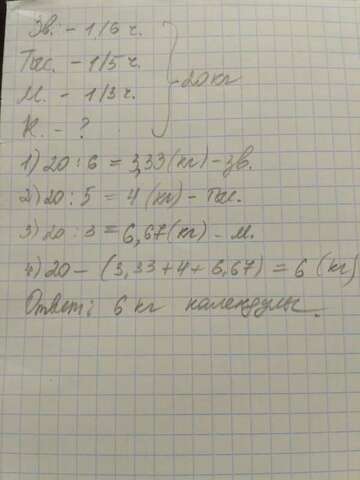 Зв. - 1/6 ч.
Тыс. - 1/5 ч.
М. - 1/3 ч.
К. - ?
20 кг
1) 20 : 6 = 3,33 (кг) - зв.
2) 20 : 5 = 4 (кг) - тыс.
3) 20 : 3 = 6,67 (кг) - м.
4) 20 - (3,33 + 4 + 6,67) = 6 (кг)
Ответ: 6 кг календулы.